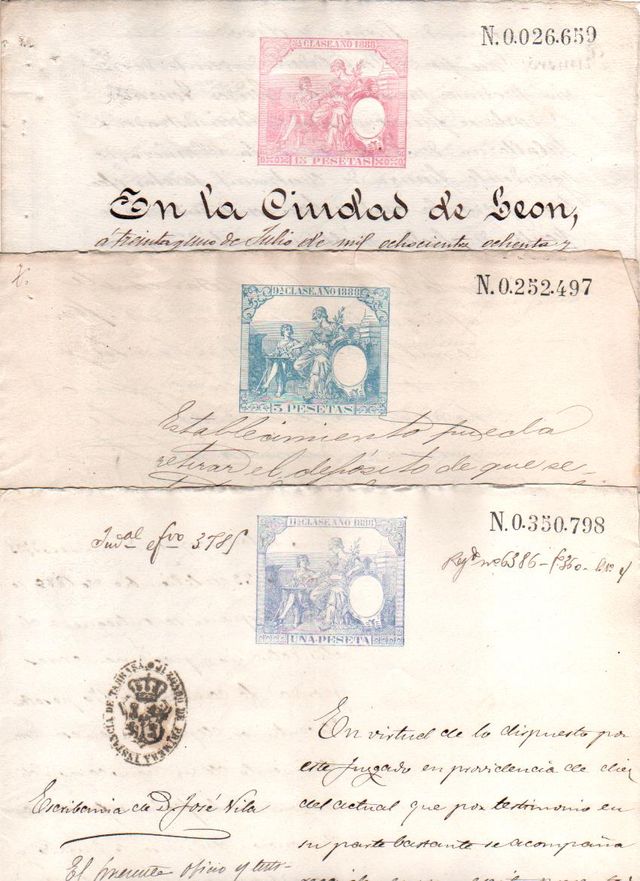 N.0.026.659
CLASE.AÑO 1888
15 PESETAS
En la Ciudad de Leon,
á treinta y uno de Julio de mil ochocientos ochenta y
N.0.252.497
9ª CLASE.AÑO 1888
5 PESETAS
Establecimiento pueda
retirar el depósito de que se-
N.0.350.798
11ª CLASE.AÑO 1888
UNA-PESETA
JUZGADO DE PRIMERA INSTANCIA DE
En virtud de lo dispuesto por
este Juzgado en providencia de diez
del actual que por testimonio en
su parte bastante se acompaña
Escribania de D. José Vila
El presente oficio y